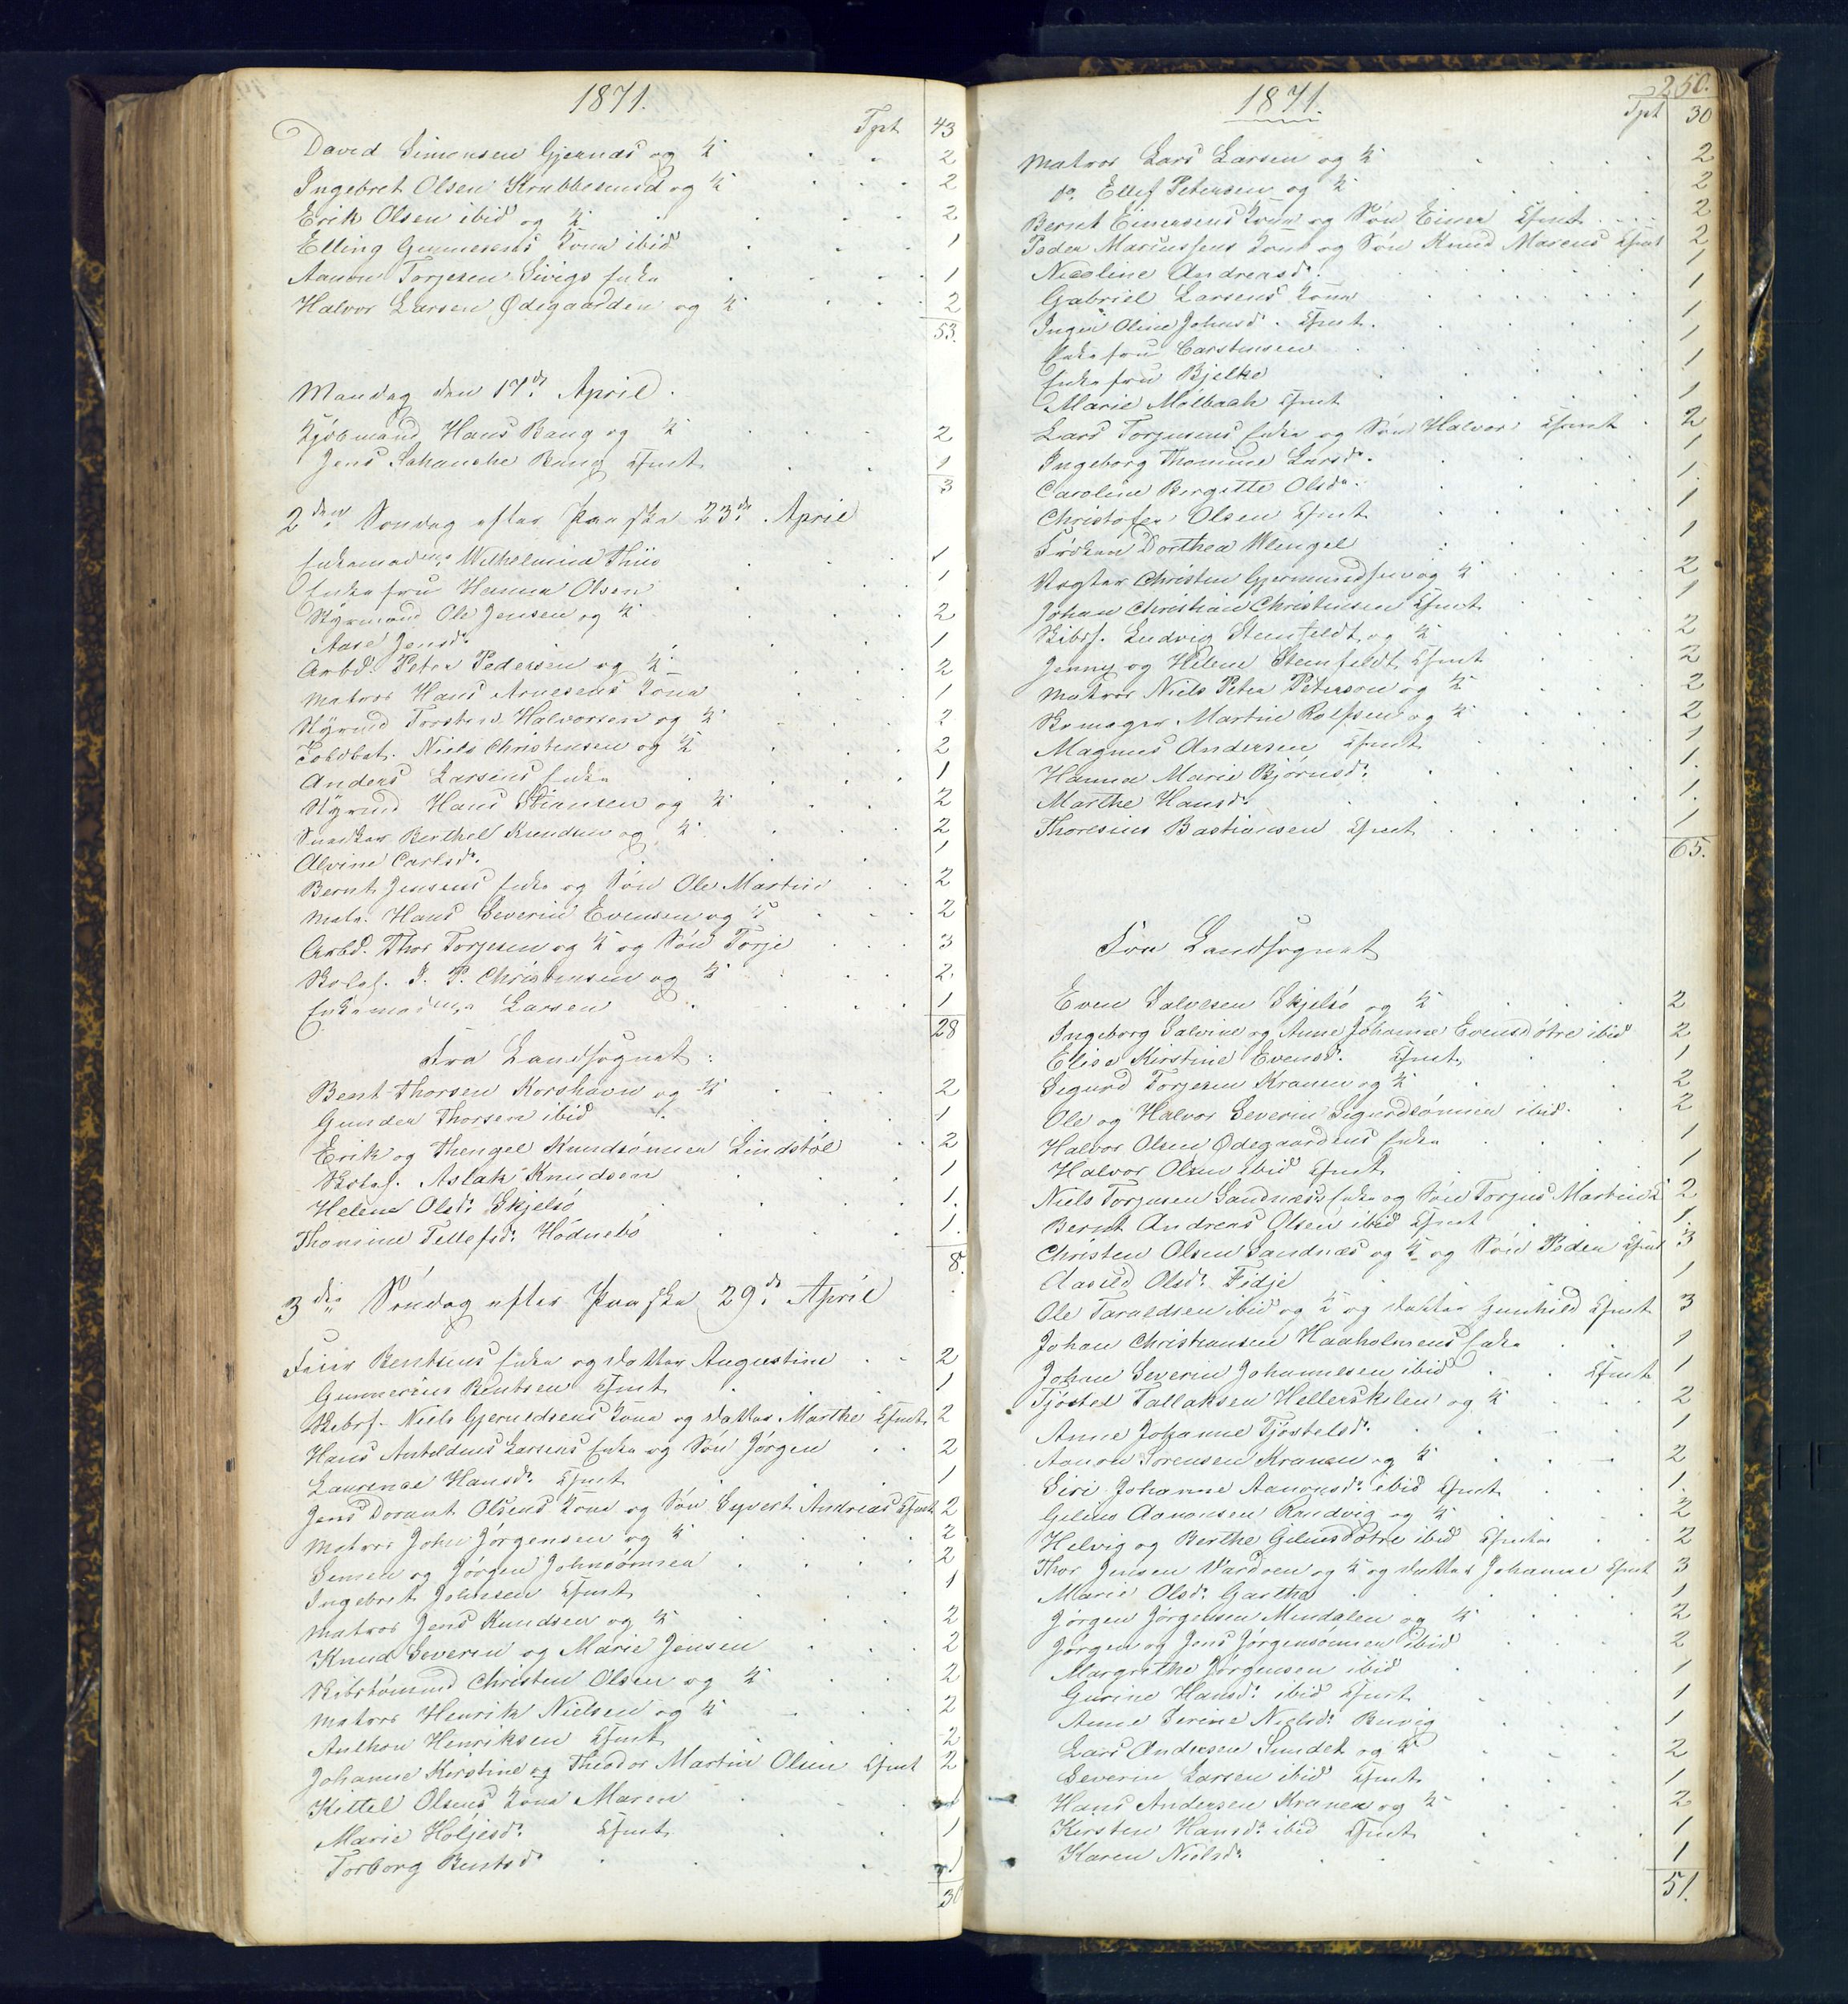 1871.
Tpt 43
David Simonsen Gjernæs og K 2
Ingebret Olsen Krabbesund og K 2
Erik Olsen ibid og K 2
Elling Gunnersens Kone ibid 1
Aanon Torjesen Sivigs Enke 1
Halvor Larsen Ødegaarden og K 2
53.
Mandag den 17de April.
Kjøbmand Hans Bang og K 2
Jens Schanche Bang Cfmt 1
3
2den Søndag efter Paaske 23de April
Enkemadme Wilhelmine Thiis 1
Enkefru Hanna Olsen 1
Styrmand Ole Jensen og K 2
Aase Jensdr 1
Arbd. Peter Pedersen og K 2
Matros Hans Arnesens Kone 1
Styrmd Torsten Halvorsen og K 2
Toldbet. Niels Christensen og K 2
Anders Larsens Enke 1
Styrmd Hans Stiansen og K 2
Snedker Berthel Knudsen og K 2
Alvine Carlsdr. 1
Bernt Jensens Enke og Søn Ole Martin 2
Matr. Hans Severin Evensen og K 2
Arbd. Thor Torjesen og K og Søn Torje 3
Skibsf. P. Christensen og K 2.
Enkemadme Larsen 1
28
Fra Landsognet:
Bent Thorsen Korshavn og K 2
Gunder Thorsen ibid 1
Erik og Thengel Knudsønner Lindstøl 2
Skibsf. Aslak Knudsen 1
Helene Olsdr Skjelsø 1.
Thomine Tellefsdr. Hødnebø 1.
8.
3die Søndag efter Paaske 29de April
Feier Bentsens Enke og Datter Augustine 2
Gunnerius Bentsen Cfmt 1
Skibsf. Niels Gjerudsens Kone og Datter Marthe Cfmt 2
Hans Larsens Enke og Søn Jørgen 2
Laurence Hansdr. Cfmt 1
Jens Dorant Olsens Kone og Søn Syvert Andreas Cfmt 2
Matros John Jørgensen og K 2
Simen og Jørgen Johnsønner 2
Ingebret Johnsen Cfmt 1
Matros Jens Knudsen og K 2
Knud Severin og Marie Jensen 2
Skibstømmd Christen Olsen og K 2
Matros Henrik Nielsen og K 2
Anthon Henriksen Cfmt 2
Johanne Kirstine og Theodor Martin Olsen Cfmt 2
Kittel Olsens Kone Maren 1
Marie Holjesdr. Cfmt 1
Torborg Bentsdr 1
30
250.
1871.
Tpt 30
Matros Lars Larsen og K 2
do. Ellef Petersen og K 2
Bernt Einersens Kone og Søn Einer Cfmt 2
Peder Marcussens Kone og Søn Knud Marcus Cfmt 2
Nicoline Andreasdr. 1
Gabriel Larsens Kone 1
Inger Oline Johnsd. Cfmt. 1
Enkefru Carstensen 1
Enkefru Bjelke 1
Marie Mølbach Cfmt 1
Lars Torjusens Enke og Søn Halvor Cfmt 2
Ingeborg Thomine Larsdr. 1
Caroline Bergitte Olsdr. 1.
Christofer Olsen Cfmt 1
Frøken Dorthea Wengel 1
Vægter Christen Gjermundsen og K 2
Johan Christian Christensen Cfmt 1
Skibsf. Ludvig Steinfeldt og K 2
Jenny og Helene Steinfeldt Cfmt 2
Matros Niels Peter Peterson og K 2
Skomager Martin Rolfsen og K 2
Magnus Andersen Cfmt 1
Hanna Marie Bjørnsdr. 1.
Marthe Hansdr. 1.
Thoresius Bastiansen Cfmt 1
65.
Fra Landsognet
Even Salvesen Skjelsø og K 2
Ingeborg Salvine og Anne Johanne Evensdøtre ibid 2
Elise Kirstine Evensdr. Cfmt 1
Sigurd Torjesen Kranen og K 2
Ole og Halvor Severin Sigurdsønner ibid. 2
Halvor Olsen Ødegaardens Enke 1
Halvor Olsen ibid Cfmt 1
Niels Torjusen Sandnæs's Enke og Søn Torjus Martin 2
Bernt Andreas Olsen ibid Cfmt 1
Christen Olsen Sandnæs og K og Søn Peder Cfmt 3
Aasild Olsdr. Fidje 1
Ole Taraldsen ibid og K og Datter Gunhild Cfmt 3
Johan Christiansen Haaholmens Enke 1
Johan Severin Johannesen ibid Cfmt 1
Tjøstel Tallaksen Hellerskilen og K 2
Anne Johanne Tjøstelsdr. 1
Aanon Sørensen Kranen og K 2
Siri Johanne Aanonsdr. ibid Cfmt 1.
Gelius Aanonsen Randvig og K 2
Helvig og Berthe Geliusdøtre ibid Cfmter 2
Thor Jensen Vardøen og K og Datter Johanne Cfmt 3
Marie Olsdr. Gartha 1
Jørgen Jørgensen Mindalen og K 2
Jørgen og Jens Jørgensønner ibid 2
Margrethe Jørgensen ibid 1
Gurine Hansdr. ibid Cfmt 1
Anne Serine Nielsdr. Buvig 1
Lars Andersen Sundet og K 2
Severin Larsen ibid Cfmt 1
Hans Andersen Kranen og K 2
Kirsten Hansdr. ibid Cfmt 1
Karen Nielsdr. 1
51.